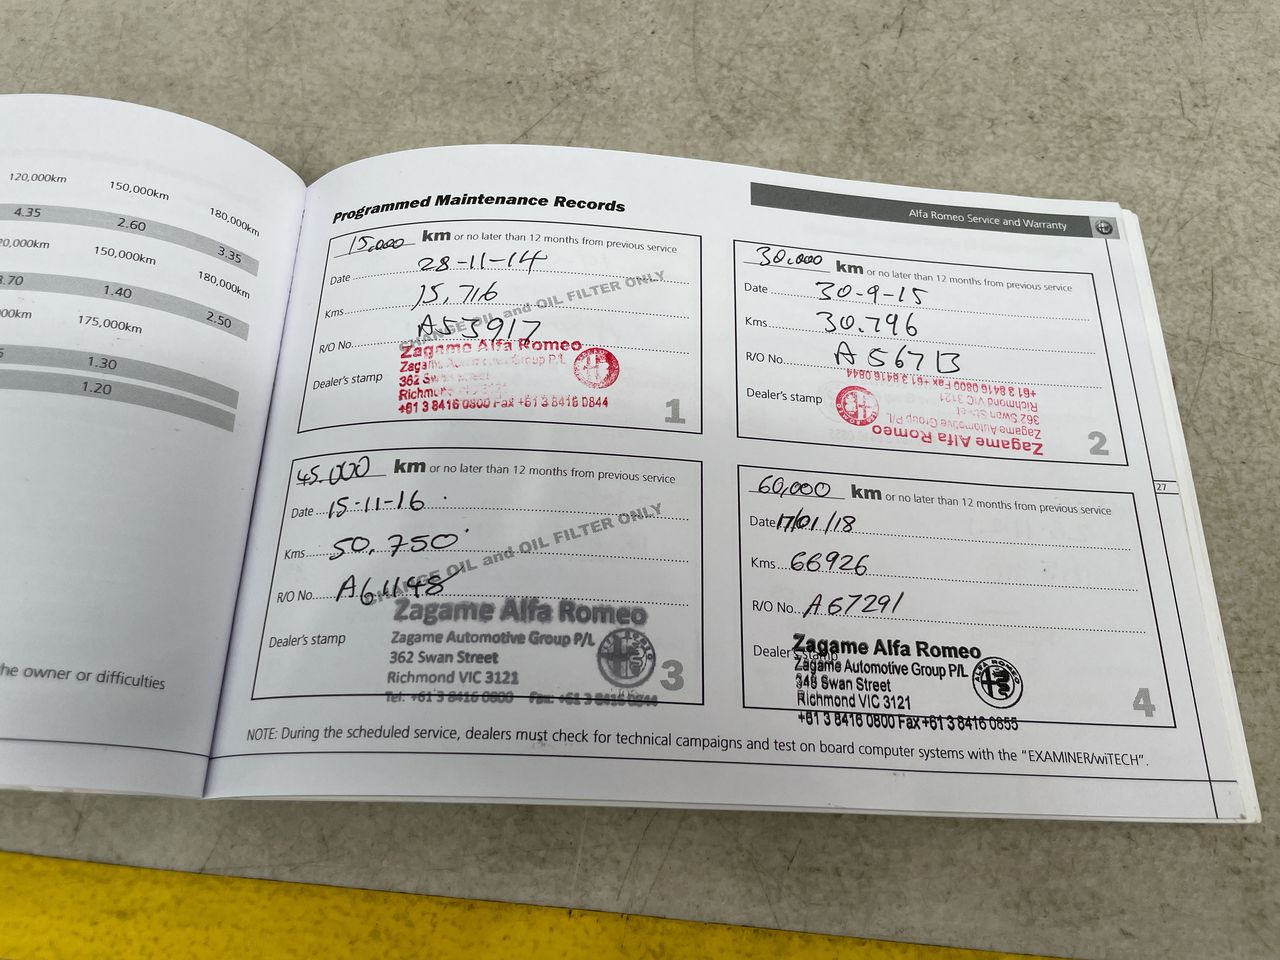 120,000km 150,000km 180,000km
4.35 2.60 3.35
150,000km 180,000km
1.40 2.50
175,000km
1.30
1.20
he owner or difficulties
Programmed Maintenance Records
Alfa Romeo Service and Warranty
15,000 km or no later than 12 months from previous service
Date 28-11-14
Kms 15,716
CHANGE OIL and OIL FILTER ONLY
R/O No. A53917
Dealer's stamp
Zagame Alfa Romeo
Zagame Automotive Group P/L
362 Swan Street
Richmond VIC 3121
+61 3 8416 0800 Fax +61 3 8416 0844
1
30,000 km or no later than 12 months from previous service
Date 30-9-15
Kms 30.796
R/O No.
Dealer's stamp
Zagame Alfa Romeo
Zagame Automotive Group P/L
362 Swan Street
Richmond VIC 3121
+61 3 8416 0800 Fax +61 3 8416 0844
2
45.000 km or no later than 12 months from previous service
Date 15-11-16
Kms 50,750
CHANGE OIL and OIL FILTER ONLY
R/O No.
Dealer's stamp
Zagame Alfa Romeo
Zagame Automotive Group P/L
362 Swan Street
Richmond VIC 3121
Tel: +61 3 8416 0800 Fax: +61 3 8416 0844
3
60,000 km or no later than 12 months from previous service
Date 17/01/18
Kms 66926
R/O No. A67291
Dealer's stamp
Zagame Alfa Romeo
Zagame Automotive Group P/L
348 Swan Street
Richmond VIC 3121
+61 3 8416 0800 Fax +61 3 8416 0855
ALFA ROMEO
4
27
NOTE: During the scheduled service, dealers must check for technical campaigns and test on board computer systems with the "EXAMINER/wiTECH".